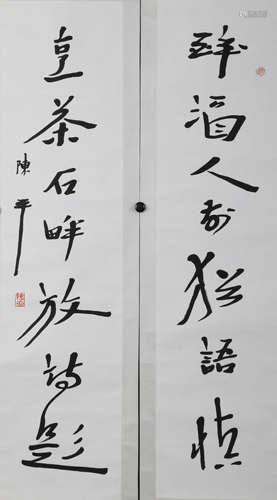 醉酒人前語慎
烹茶石畔放詩題
陳平